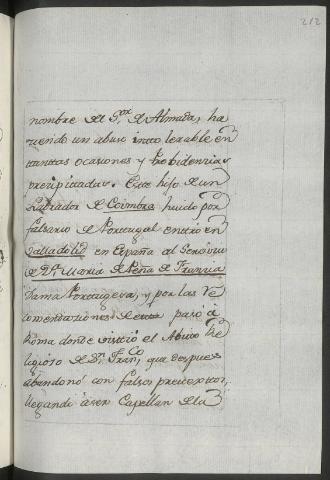 212
nombre de S.or de Almada, ha
ciendo un abuso intolerable en
tanttas ocasiones y Probidencias
precipittadas. Este hijo de un
Labrador de Coimbra huido por
falsario de Portugal enttró en
Valladolid en España al Servicio
de D.ª Maria de Peña de Francia
Dama Portugesa, y por las re
comendaciones de esta pasó à
Roma donde visttió el Abitto Re
ligioso de S.n Fran.co, que despues
abandonó con falsos pretextos,
llegando à ser Capellan de la